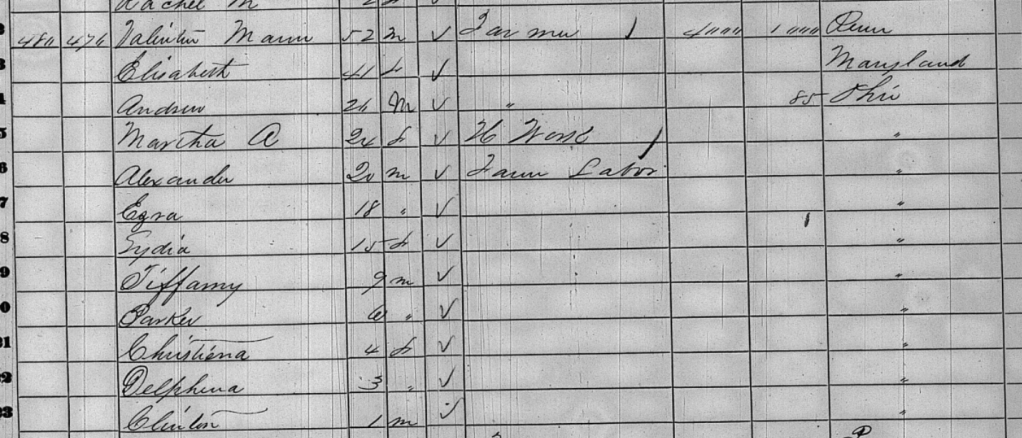 Rachel M
480 476 Valintin Mann 52 m ✓ Farmer / 4000 1000 Penn
3 Elisabeth 41 f ✓ Maryland
Andrew 26 M ✓ " 85 Ohio
5 Martha A 24 f ✓ H Work / "
6 Alexander 20 m ✓ Farm Labor "
7 Ezra 18 " ✓ "
8 Lydia 15 f ✓ "
9 Tiffamy 9 m ✓ "
0 Parker 6 " ✓ "
21 Christiena 4 f ✓ "
22 Delphina 3 " ✓ "
23 Clinton 1 m ✓ "